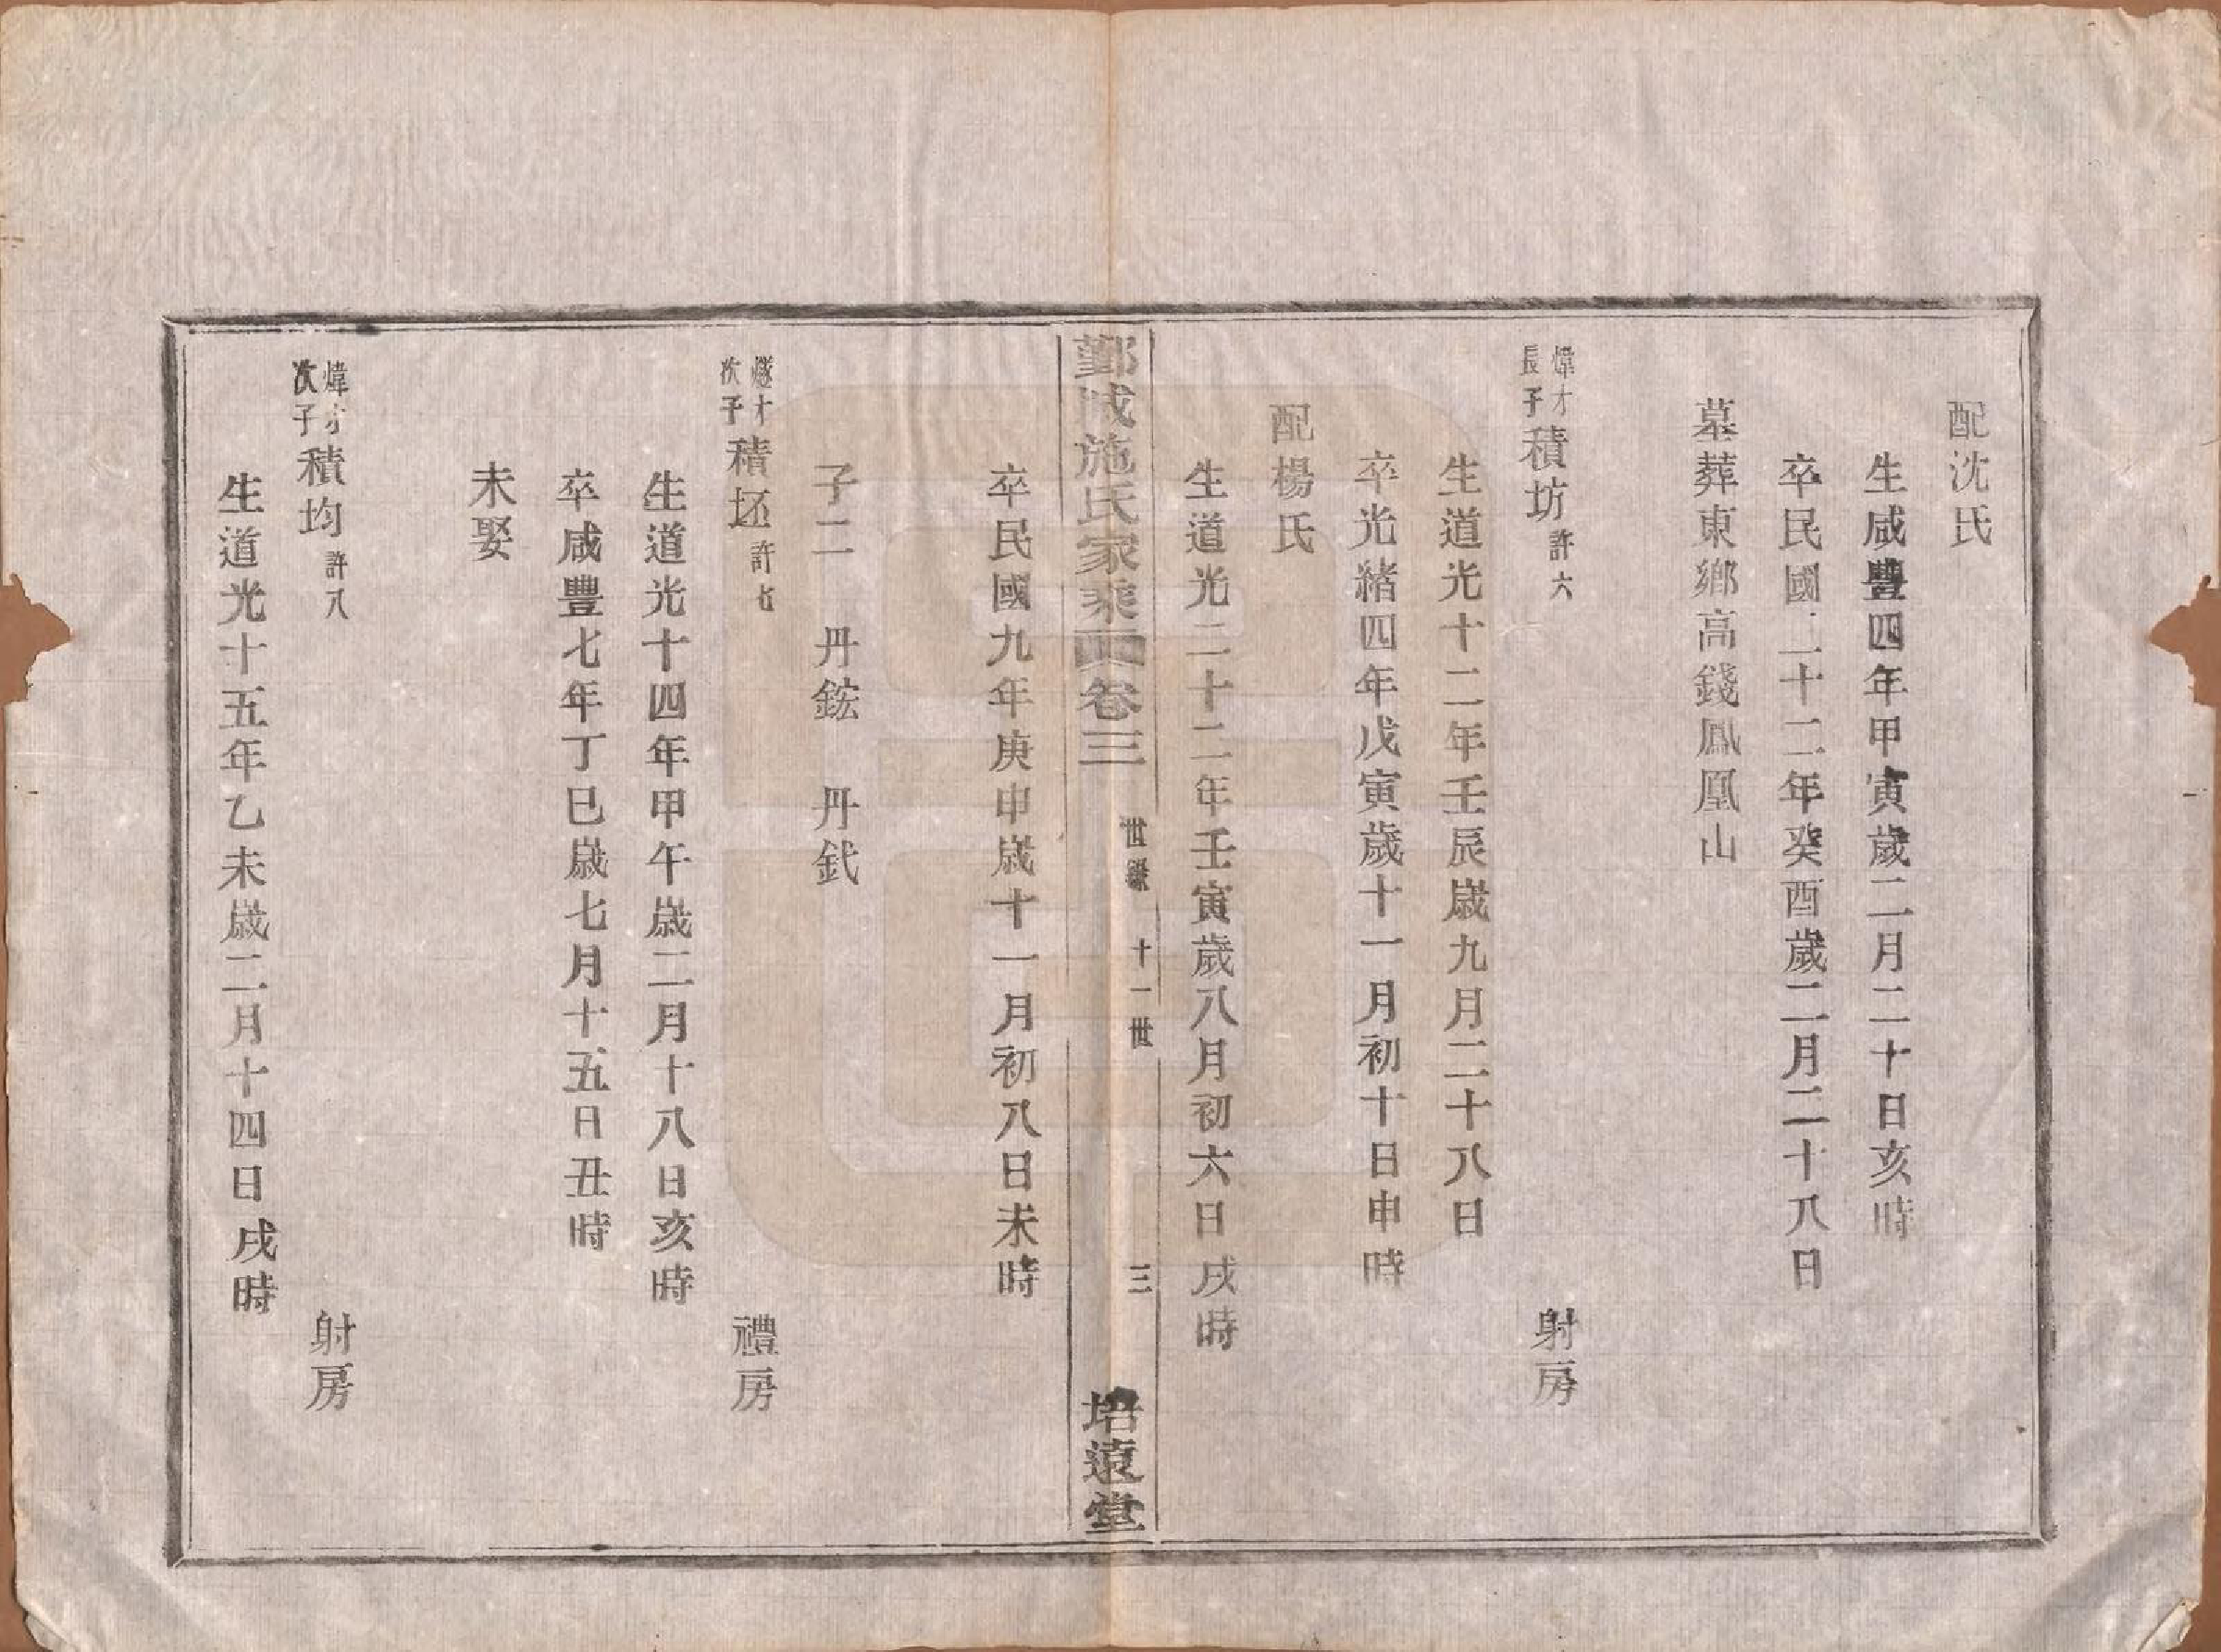 配沈氏
生咸豐四年甲寅歲二月二十日亥時
卒民國二十二年癸酉歲二月二十八日
墓葬東鄉高錢鳳凰山
煒才長子積坊許六 射房
生道光十二年壬辰歲九月二十八日
卒光緒四年戊寅歲十一月初十日申時
配楊氏
生道光二十二年壬寅歲八月初六日戌時
鄞城施氏家乘 卷三 世錄 十一世 三 培遠堂
卒民國九年庚申歲十一月初八日未時
子二 丹鋐 丹鈛
燧才次子積坯許七 禮房
生道光十四年甲午歲二月十八日亥時
卒咸豐七年丁巳歲七月十五日丑時
未娶
煒才次子積均許八 射房
生道光十五年乙未歲二月十四日戌時